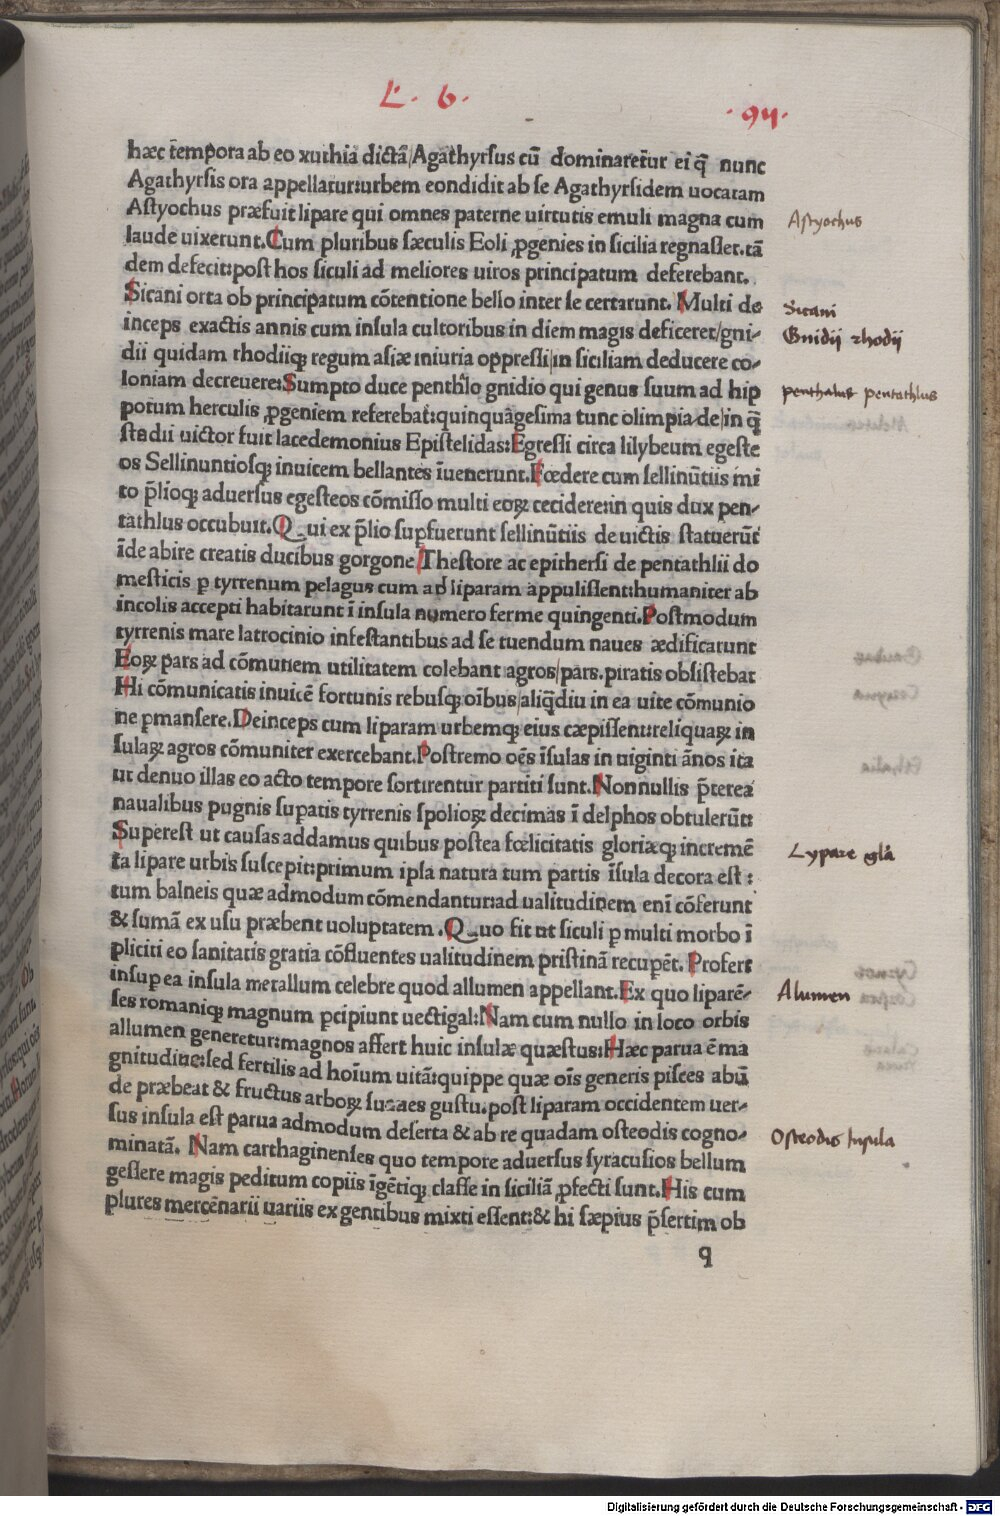 L. 6.
.94.
hæc tẽmpora ab eo xuthia dictã/Agathyrſus cũ dominaretur ei q̃ nunc
Agathyrſis ora appellatur:urbem condidit ab ſe Agathyrſidem uocatam
Aſtyochus præfuit lipare qui omnes paterne uirtutis emuli magna cum
laude uixerunt.Cum pluribus ſæculis Eoli ꝓgenies in ſicilia regnaſſet.tã
dem defecit:poſt hos ſiculi ad meliores uiros principatum deferebant.
Sicani orta ob principatum cõtentione bello inter ſe certarunt. Multi de
inceps exactis annis cum inſula cultoribus in diem magis deficeret/gni-
dii quidam rhodiiq; regum aſiæ iniuria oppreſſi/in ſiciliam deducere co-
loniam decreuere:Sumpto duce penthlo gnidio qui genus ſuum ad hip
potum herculis ꝓgeniem referebat:quinquãgeſima tunc olimpia-de/in q̃
ſtadii uictor fuit lacedemonius Epiſtelidas:Egreſſi circa lilybeum egeſte
os Sellinuntioſq; inuicem bellantes ĩuenerunt.Fœdere cum ſellinũtiis ini
to p̃lioq; aduerſus egeſteos cõmiſſo multi eoꝝ cecidere:in quis dux pen-
tathlus occubuit.Qui ex p̃lio ſupfuerunt ſellinũtiis deuictis ſtatuerũt
ĩde abire creatis ducibus gorgone Theſtore ac epitherſi de pentathlii do
meſticis ꝑ tyrrenum pelagus cum ad liparam appuliſſent:humaniter ab
incolis accepti habitarunt ĩ inſula numero ferme quingenti.Poſtmodum
tyrrenis mare latrocinio infeſtantibus ad ſe tuendum naues ædificarunt
Eoꝝ pars ad cõmunem utilitatem colebant agros/pars.piratis obſiſtebat
Hi cõmunicatis inuicẽ fortunis rebuſq; oĩbus/aliq̃diu in ea uite cõmunio
ne ꝑmanſere.Deinceps cum liparam urbemq; eius cæpiſſent:reliquaꝝ in
ſulaꝝ agros cõmuniter exercebant.Poſtremo oẽs ĩſulas in uiginti ãnos ita
ut denuo illas eo acto tempore ſortirentur partiti ſunt.Nonnullis p̃terea
naualibus pugnis ſupatis tyrrenis ſpolioꝝ decimas ĩ delphos obtulerũt:
Supereſt ut cauſas addamus quibus poſtea fœlicitatis gloriæq; incremẽ
ta lipare urbis ſuſcepit:primum ipſa natura tum partis ĩſula decora eſt :
tum balneis quæ admodum cõmendantur:ad ualitudinem enĩ cõferunt
& ſumã ex uſu præbent uoluptatem .Quo fit ut ſiculi ꝑ multi morbo ĩ
pliciti eo ſanitatis gratia cõfluentes ualitudinem priſtinã recupẽt. Profert
inſup ea inſula metallum celebre quod allumen appellant.Ex quo liparẽ-
ſes romaniq; magnum ꝑcipiunt uectigal:Nam cum nullo in loco orbis
allumen generetur:magnos affert huic inſulæ quæſtus:Hæc parua ẽ ma
gnitudine:ſed fertilis ad hoĩum uitã:quippe quæ oĩs generis piſces abũ
de præbeat & fructus arboꝝ ſuaues guſtu.poſt liparam occidentem uer-
ſus inſula eſt parua admodum deſerta & ab re quadam oſteodis cogno-
minatã. Nam carthaginenſes quo tempore aduerſus ſyracuſios bellum
geſſere magis peditum copiis ĩgẽtiq; claſſe in ſiciliã ꝓfecti ſunt.His cum
plures mercẽnarii uariis ex gentibus mixti eſſent:& hi ſæpius p̃ſertim ob
q
Astyochus
Sicani
Gnidij rhodij
penthalus pentathlus
Lypare glã
Alumen
Osteodis Insula
Digitalisierung gefördert durch die Deutsche Forschungsgemeinschaft - DFG